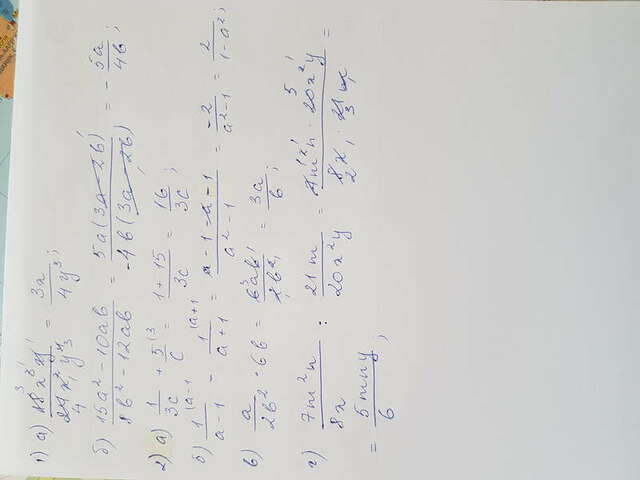 1) а) 18x³y / 24x²y⁴ = 3x / 4y³;
б) 15a² - 10ab / 8b² - 12ab = 5a(3a - 2b) / -4b(3a - 2b) = - 5a / 4b;
2) а) 1 / 3c + 5 (3 / c = 1 + 15 / 3c = 16 / 3c;
б) 1 (a-1 / a - 1 - 1 (a+1 / a + 1 = a - 1 - a - 1 / a² - 1 = -2 / a² - 1 = 2 / 1 - a²;
в) a / 2b² · 6b = 6ab / 2b² = 3a / b;
г) 7m²n / 8x : 21m / 20x²y = 7m²n · 20x²y / 8x · 21m =
= 5mny / 6;